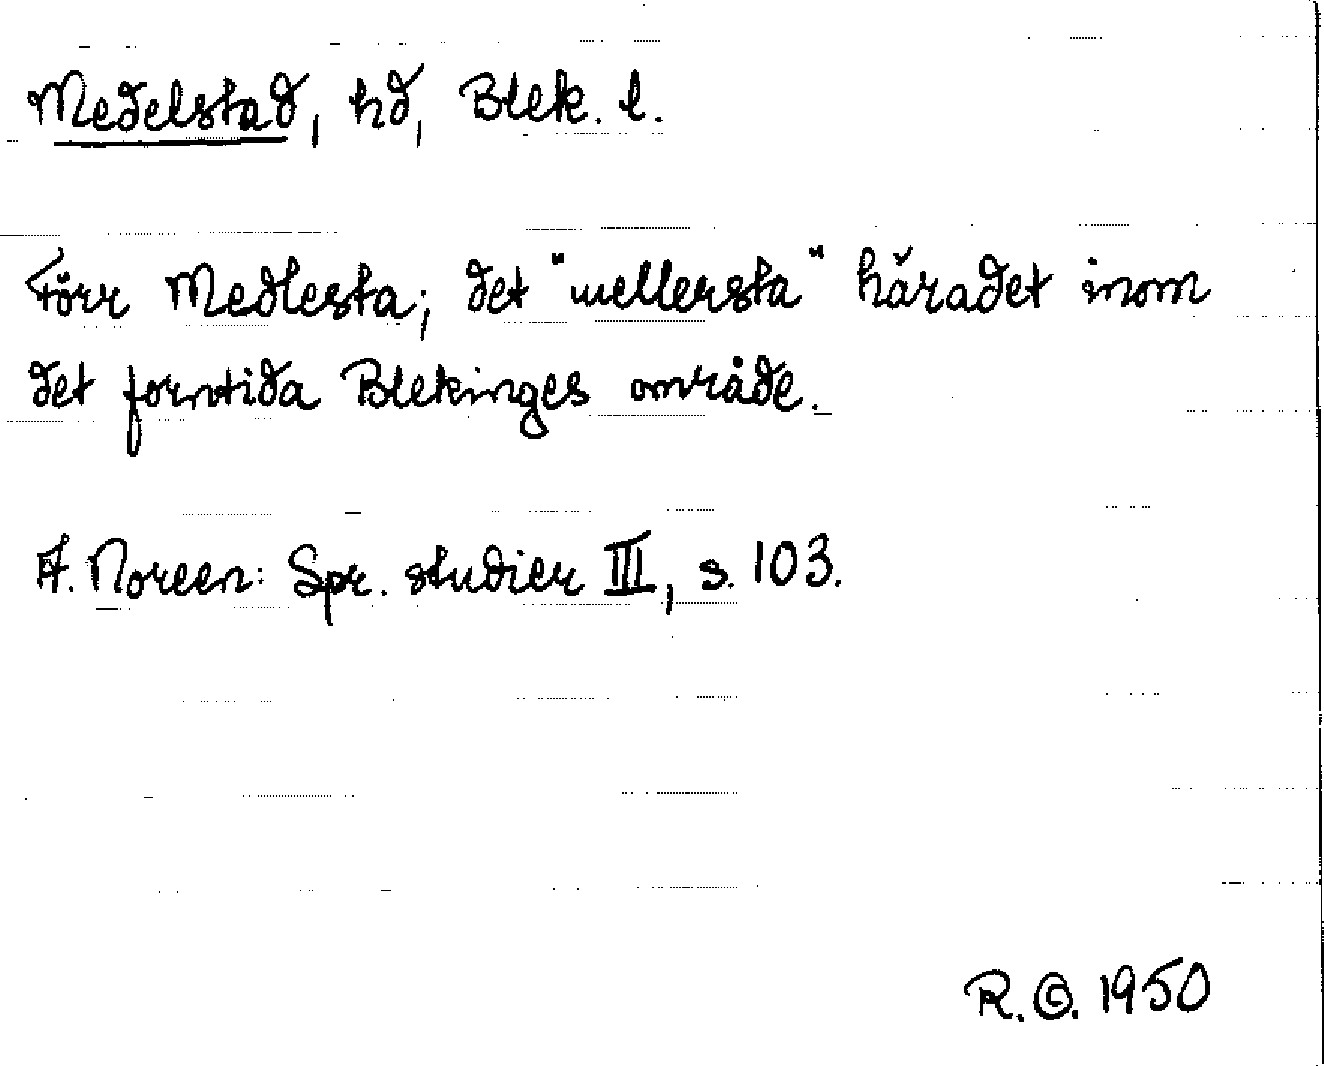 Medelstad, hd, Blek. l.
Förr Medlesta; det "mellersta" häradet inom
det forntida Blekinges område.
A. Noreen: Spr. studier III, s. 103.
R. 1950